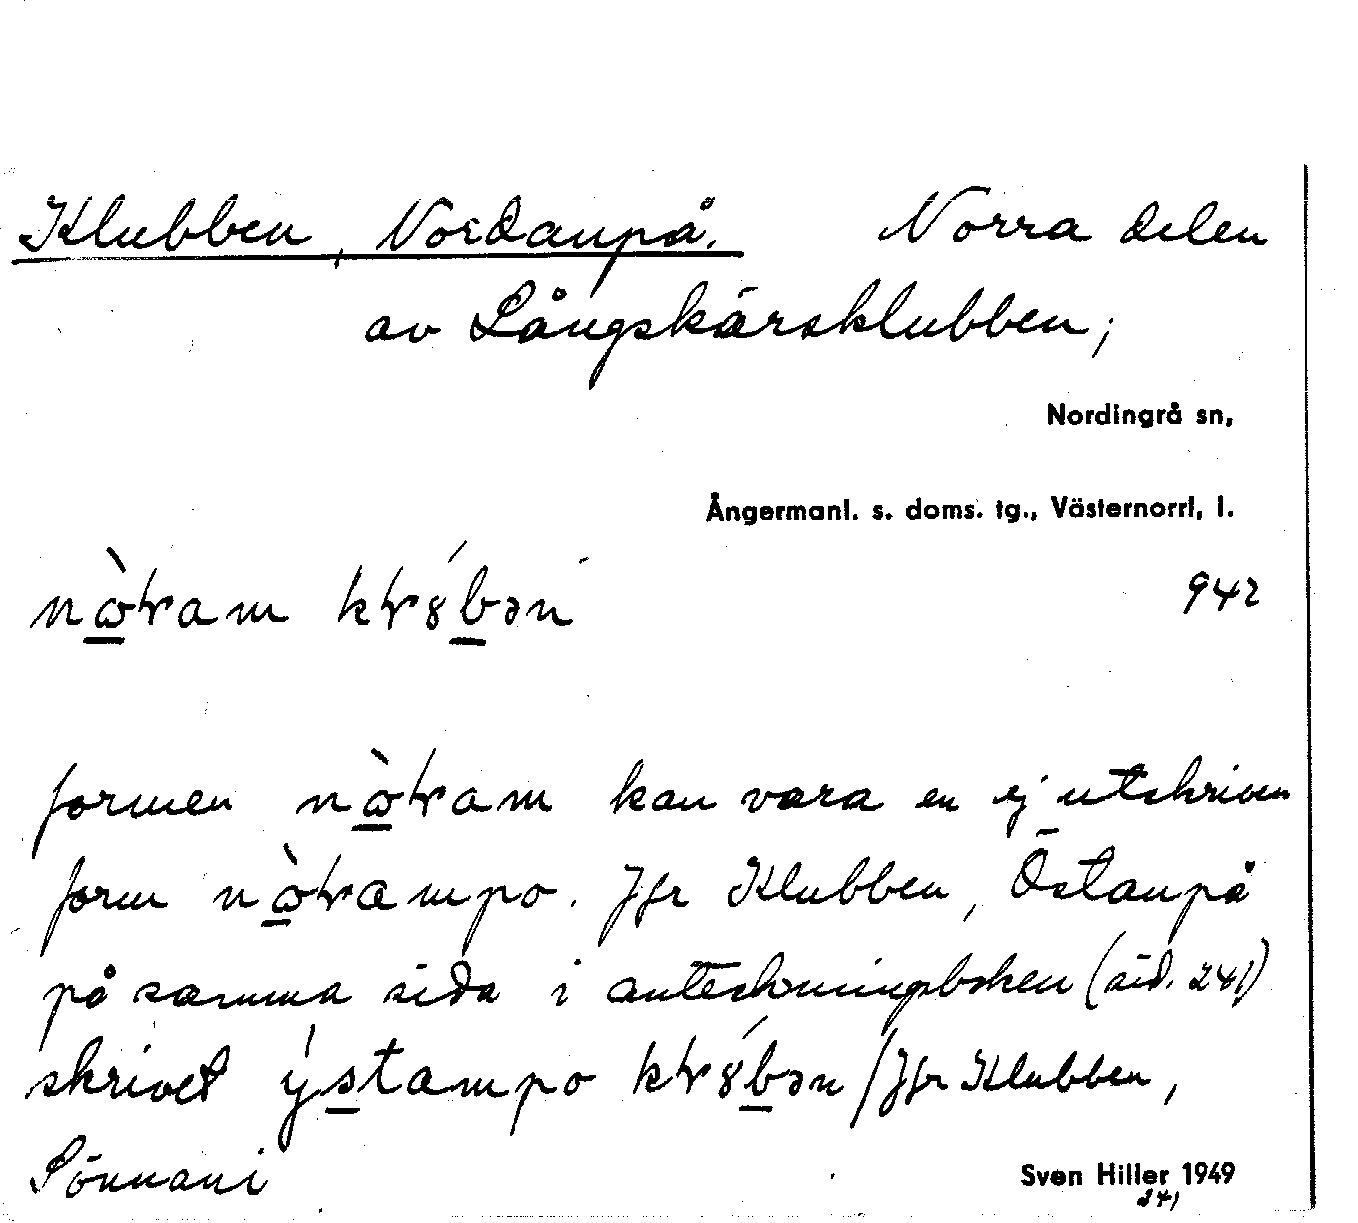 Klubben, Nordanpå. Norra delen
av Långskärsklubben;
Nordingrå sn,
Ångermanl. s. doms. tg., Västernorrl. l.
942
formen kan vara en ej utskriven
form. Jfr Klubben, Östanpå
på samma sida i anteckningsboken (sid. 241)
skrivet /Jfr Klubben,
Sönnani
Sven Hiller 1949
241